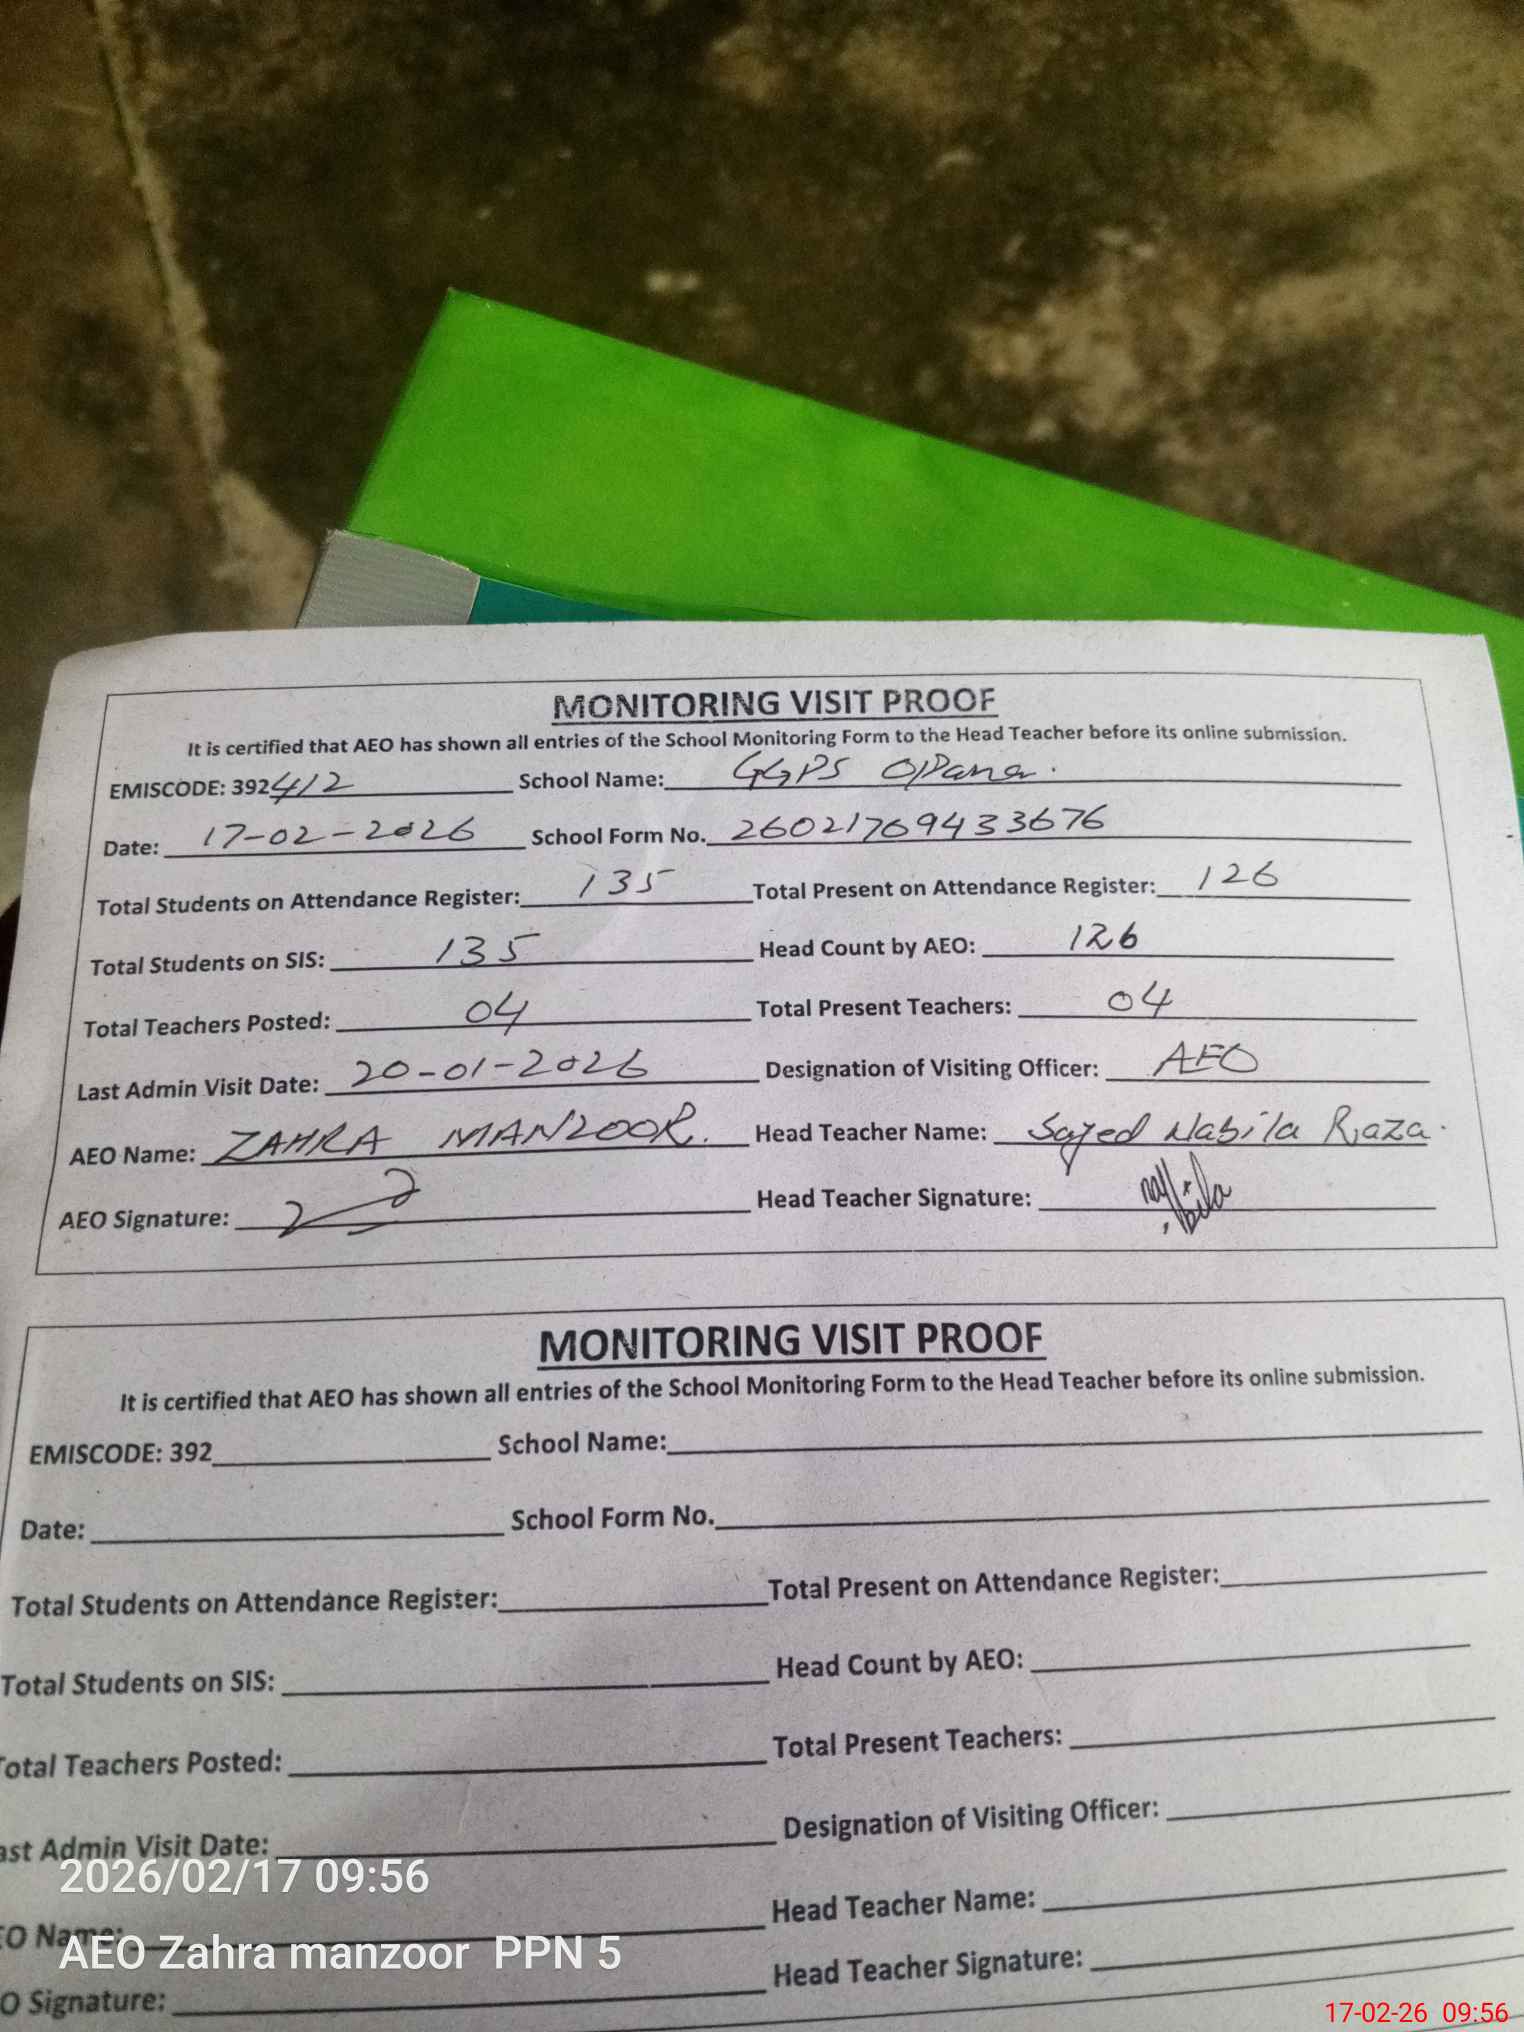 MONITORING VISIT PROOF
It is certified that AEO has shown all entries of the School Monitoring Form to the Head Teacher before its online submission.
EMISCODE: 392412 School Name: GGPS OPana.
Date: 17-02-2026 School Form No. 26021769433676
Total Students on Attendance Register: 135 Total Present on Attendance Register: 126
Total Students on SIS: 135 Head Count by AEO: 126
Total Teachers Posted: 04 Total Present Teachers: 04
Last Admin Visit Date: 20-01-2026 Designation of Visiting Officer: AEO
AEO Name: ZAHRA MANZOOR. Head Teacher Name: Sayed Nabila Raza.
AEO Signature: Head Teacher Signature:
MONITORING VISIT PROOF
It is certified that AEO has shown all entries of the School Monitoring Form to the Head Teacher before its online submission.
EMISCODE: 392 School Name:
Date: School Form No.
Total Students on Attendance Register: Total Present on Attendance Register:
Total Students on SIS: Head Count by AEO:
otal Teachers Posted: Total Present Teachers:
ast Admin Visit Date: Designation of Visiting Officer:
2026/02/17 09:56
EO Name: Head Teacher Name:
AEO Zahra manzoor PPN 5
O Signature: Head Teacher Signature:
17-02-26 09:56